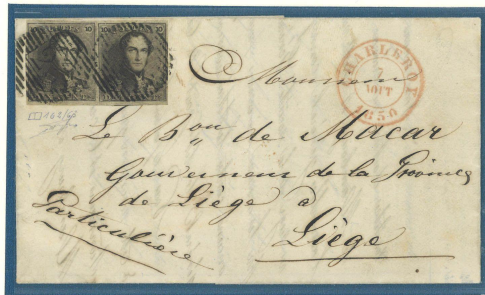 10 10 10
CHARLEROY
7
AOUT
1850
Monsieur
Le Bon de Macar
Gouverneur de la Province
de Liège à
Liège
Particulière